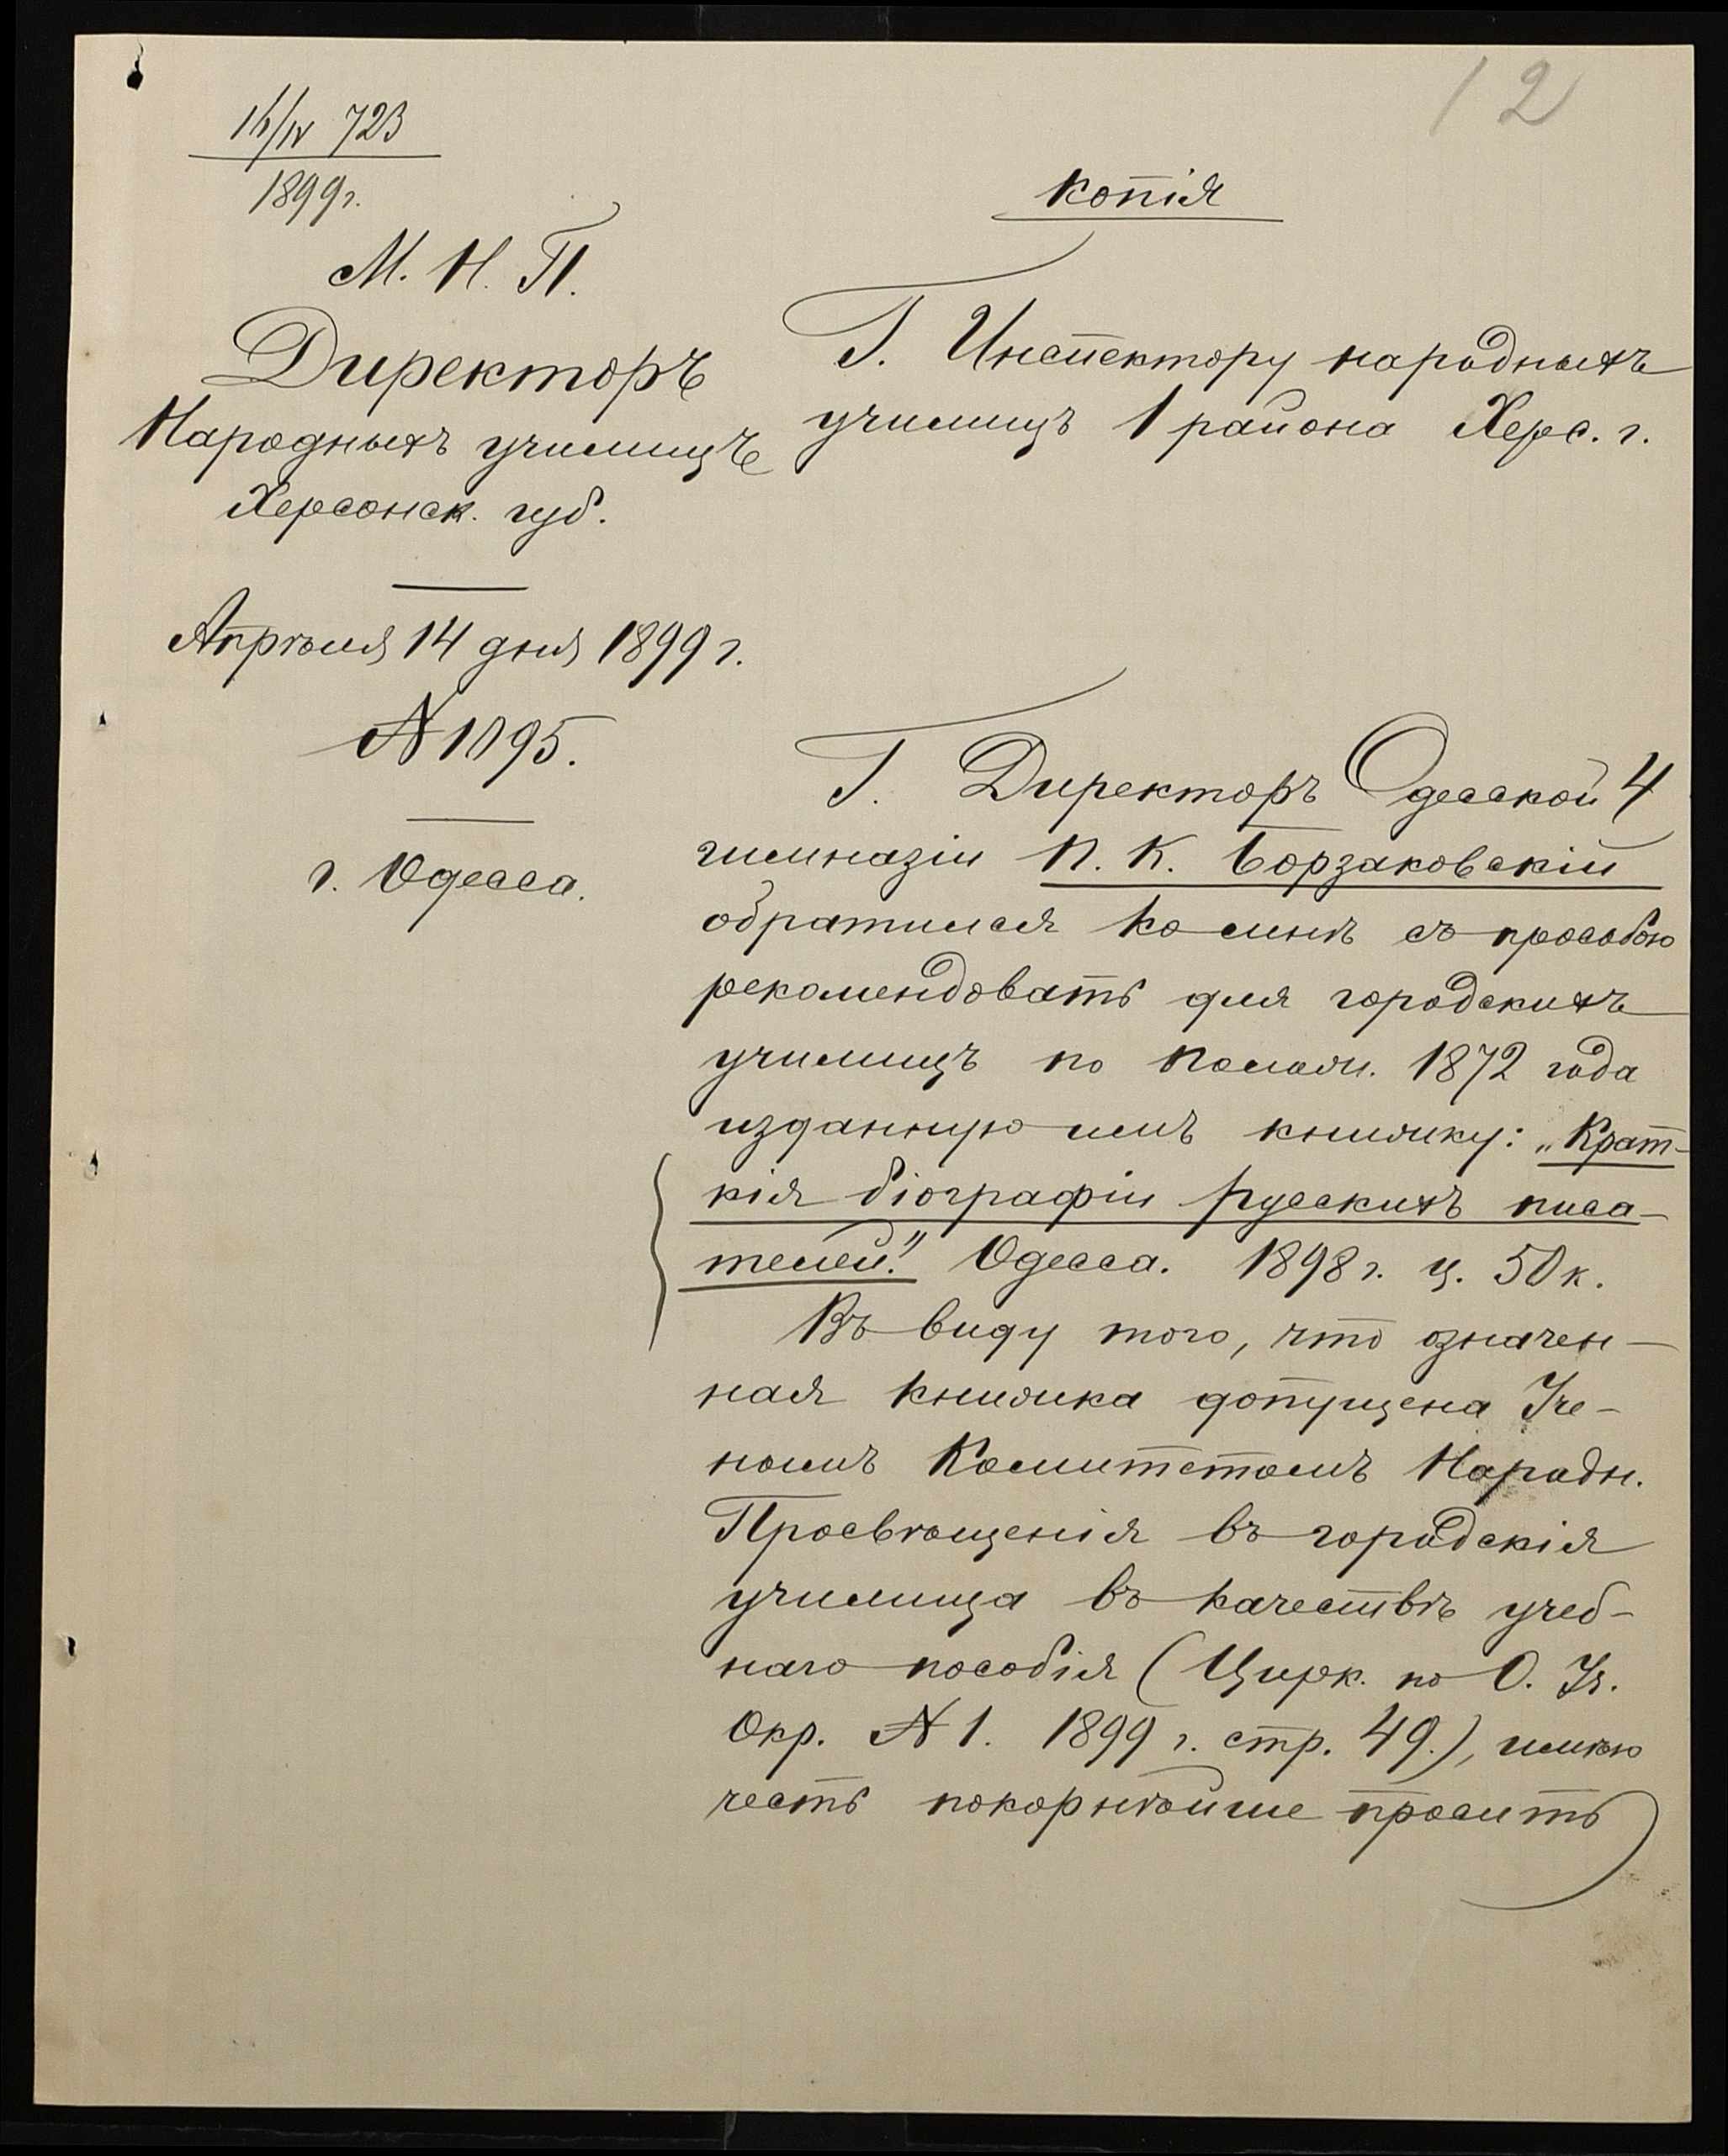 12
16/IV 723
1899 г.
копія
М. Н. П.
Директоръ
Народныхъ училищъ
Херсонск. губ.
Апрѣля 14 дня 1899 г.
№ 1095.
г. Одесса.
Г. Инспектору народныхъ
училищъ 1 района Херс. г.
Г. Директоръ Одесской 4
гимназіи П. К. Борзаковскій
обратился ко мнѣ съ просьбою
рекомендовать для городскихъ
училищъ по Полож. 1872 года
изданную имъ книжку: „Крат-
кія біографіи русскихъ писа-
телей." Одесса. 1898 г. ц. 50 к.
Въ виду того, что означен-
ная книжка допущена Уче-
нымъ Комитетомъ Народн.
Просвѣщенія въ городскія
училища въ качествѣ учеб-
наго пособія (Цирк. по О. Уч.
Окр. № 1. 1899 г. стр. 49.), имѣю
честь покорнѣйше просить